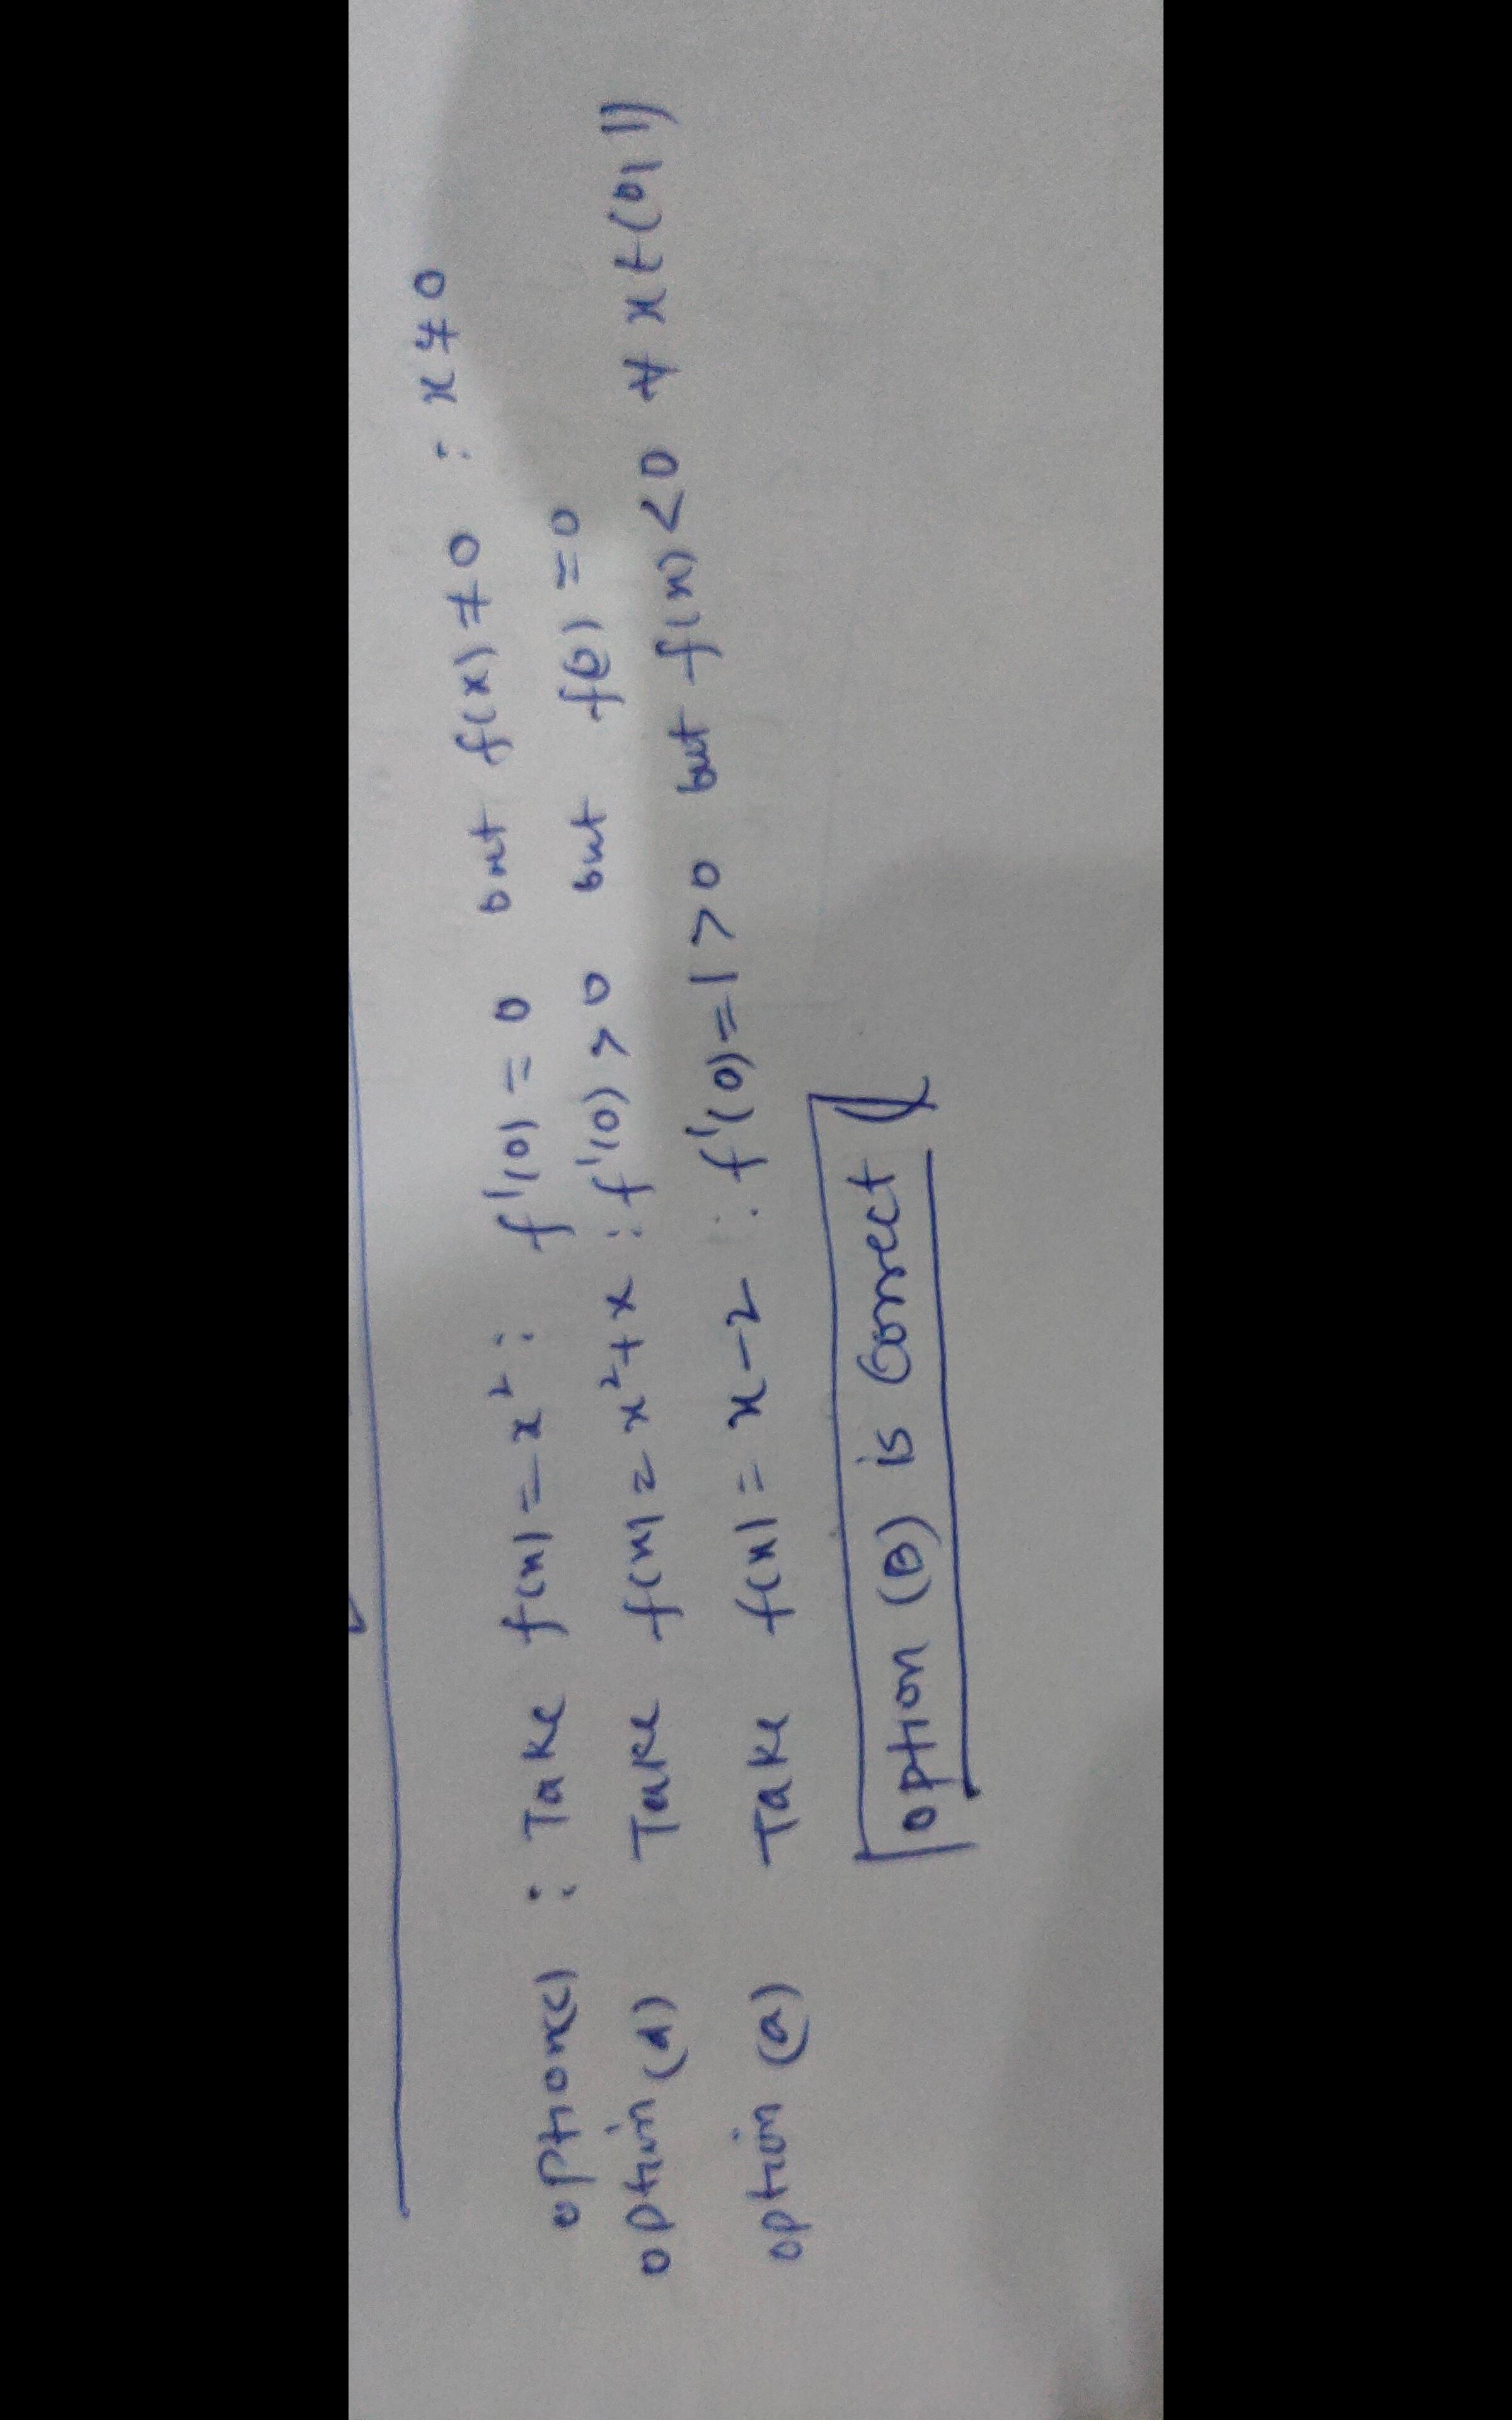 option(c) : Take f(x) = x² : f'(0) = 0 but f(x) ≠ 0 : x ≠ 0
option (d) Take f(x) = x² + x : f'(0) > 0 but f(0) = 0
option (a) Take f(x) = x - 2 : f'(0) = 1 > 0 but f(x) < 0 ∀ x ∈ (0, 1)
option (B) is correct